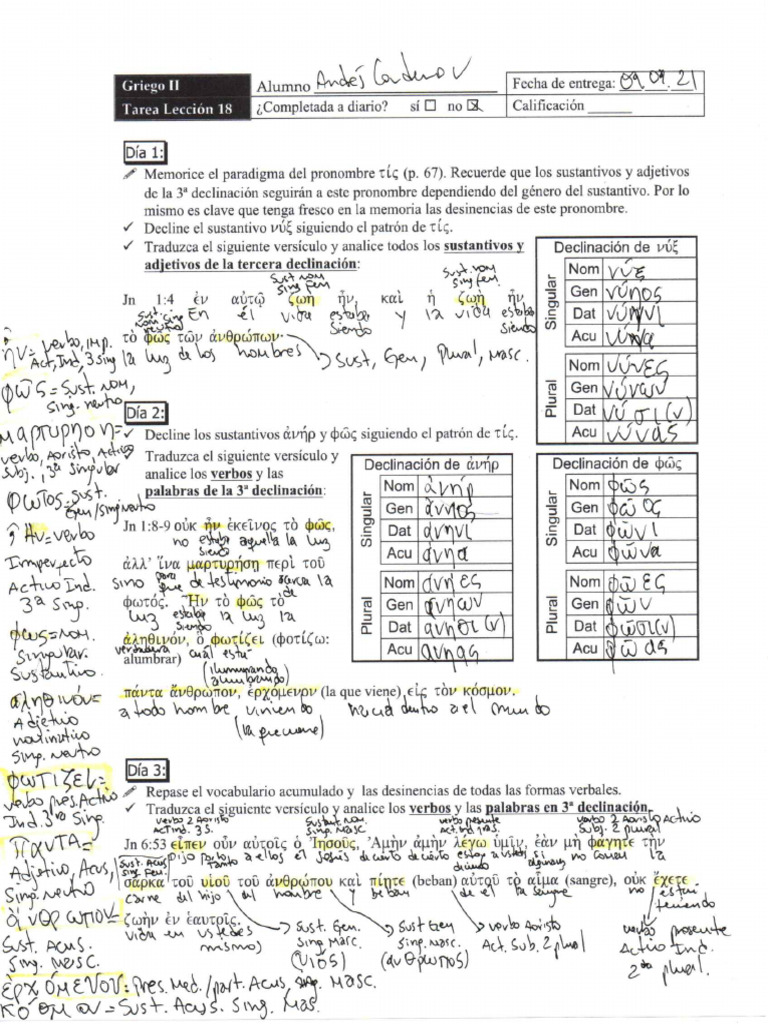 Griego II
Tarea Lección 18
Alumno Andrés Cardeno V
¿Completada a diario? sí ☐ no ☒
Fecha de entrega: 09.09.21
Calificación ______
Día 1:
Memorice el paradigma del pronombre τίς (p. 67). Recuerde que los sustantivos y adjetivos
de la 3ª declinación seguirán a este pronombre dependiendo del género del sustantivo. Por lo
mismo es clave que tenga fresco en la memoria las desinencias de este pronombre.
✓ Decline el sustantivo νύξ siguiendo el patrón de τίς.
✓ Traduzca el siguiente versículo y analice todos los sustantivos y
adjetivos de la tercera declinación:
Sust. nom Sing fem
Sust. nom Sing fem
Jn 1:4 ἐν αὐτῷ ζωὴ ἦν, καὶ ἡ ζωὴ ἦν
En él vida estaba siendo y la vida estaba siendo
τὸ φῶς τῶν ἀνθρώπων·
la luz de los hombres
Sust, Gen, Plural, Masc.
ἦν = verbo, imp.
Act, Ind, 3 Sing
φῶς = Sust. nom,
Sing. neutro
Declinación de νύξ
Singular
Nom νύξ
Gen
Dat
Acu
Plural
Nom νύνες
Gen νύνων
Dat νύσι(ν)
Acu νύνας
Día 2:
✓ Decline los sustantivos ἀνήρ y φῶς siguiendo el patrón de τίς.
✓ Traduzca el siguiente versículo y
analice los verbos y las
palabras de la 3ª declinación:
Jn 1:8-9 οὐκ ἦν ἐκεῖνος τὸ φῶς,
no estaba siendo aquella la luz
ἀλλ' ἵνα μαρτυρήσῃ περὶ τοῦ
sino para que de testimonio acerca de la
φωτός. Ἦν τὸ φῶς τὸ
luz estaba siendo la luz la
ἀληθινόν, ὃ φωτίζει (φοτίζω:
alumbrar)
verdadera cual está
(iluminando alumbrando)
πάντα ἄνθρωπον, ἐρχόμενον (la que viene) εἰς τὸν κόσμον.
a todo hombre viniendo hacia dentro a el mundo
(la que viene)
verbo, Aoristo, Activo
Subj. 3ª Singular
φωτος = Sust.
Gen/Sing neutro
Ην = verbo
Imperfecto
Activo Ind.
3ª Sing.
φως = nom.
Singular.
Sustantivo
αληθινόν =
Adjetivo
nominativo
Sing. neutro
Declinación de ἀνήρ
Singular
Nom ἀνήρ
Gen ἀνηος
Dat ἀνηνι
Acu ανηα
Plural
Nom ἀνηες
Gen ἀνηων
Dat ανησι(ν)
Acu ανηας
Declinación de φῶς
Singular
Nom φῶς
Gen φῶος
Dat φῶνι
Acu φῶνα
Plural
Nom φῶες
Gen φῶν
Dat φῶσι(ν)
Acu φῶας
Día 3:
Repase el vocabulario acumulado y las desinencias de todas las formas verbales.
✓ Traduzca el siguiente versículo y analice los verbos y las palabras en 3ª declinación.
verbo 2 Aoristo Act Ind. 3 S.
Sustant nom. Sing. Masc
verbo presente Act. ind 1ª S.
verbo 2 Aoristo Activo Subj. 2 plural
Jn 6:53 εἶπεν οὖν αὐτοῖς ὁ Ἰησοῦς, Ἀμὴν ἀμὴν λέγω ὑμῖν, ἐὰν μὴ φάγητε τὴν
Dijo por lo tanto a ellos el Jesús de cierto de cierto estoy diciendo a ustedes si no coman la
Sust. Acus Sing. Fem.
σάρκα τοῦ υἱοῦ τοῦ ἀνθρώπου καὶ πίητε (beban) αὐτοῦ τὸ αἷμα (sangre), οὐκ ἔχετε
carne del hijo del hombre y beban de el la sangre no están teniendo
ζωὴν ἐν ἑαυτοῖς.
vida en ustedes mismos)
Sust. Gen. Sing Masc (υιος)
Sust Gen Sing. Masc. (ανθρωπος)
verbo Aoristo Act. Sub. 2 plural
verbo presente Activo Ind. 2da plural.
φωτιζει =
verbo Pres. Activo
Ind. 3ra Sing.
Παντα =
Adjetivo, Acus,
Sing. neutro
Sust Acus.
Sing. Masc.
ἐρχόμενον: Pres. Med./part. Acus, sing. Masc.
κόσμον = Sust. Acus. Sing. Mas.